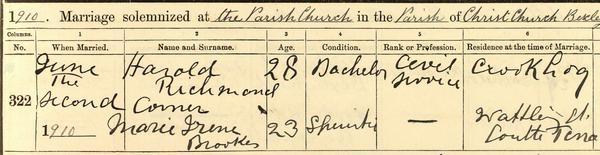 1910. Marriage solemnized at the Parish Church in the Parish of Christ Church Bexley
Columns. 1 2 3 4 5 6
No. When Married. Name and Surname. Age. Condition. Rank or Profession. Residence at the time of Marriage.
322 June The Second 1910 Harold Richmond Corner 28 Bachelor Civil Service
Marie Irene Brookes 23 Spinster — Watling St.